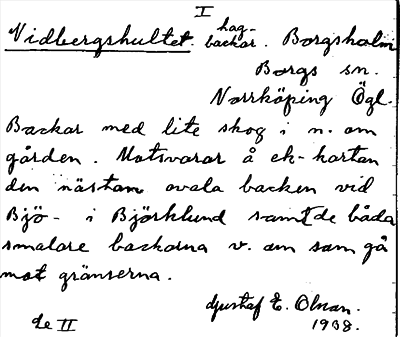 I
Vidbergshultet. hag-
backar. Borgsholm
Borgs sn.
Norrköping Ögl.
Backar med lite skog i n. om
gården. Motsvarar å ek-kartan
den nästan ovala backen vid
Bjö- i Björklund samt de båda
smalare backarna v. om som gå
mot gränserna.
Gustaf E. Olsson.
1908.
de II